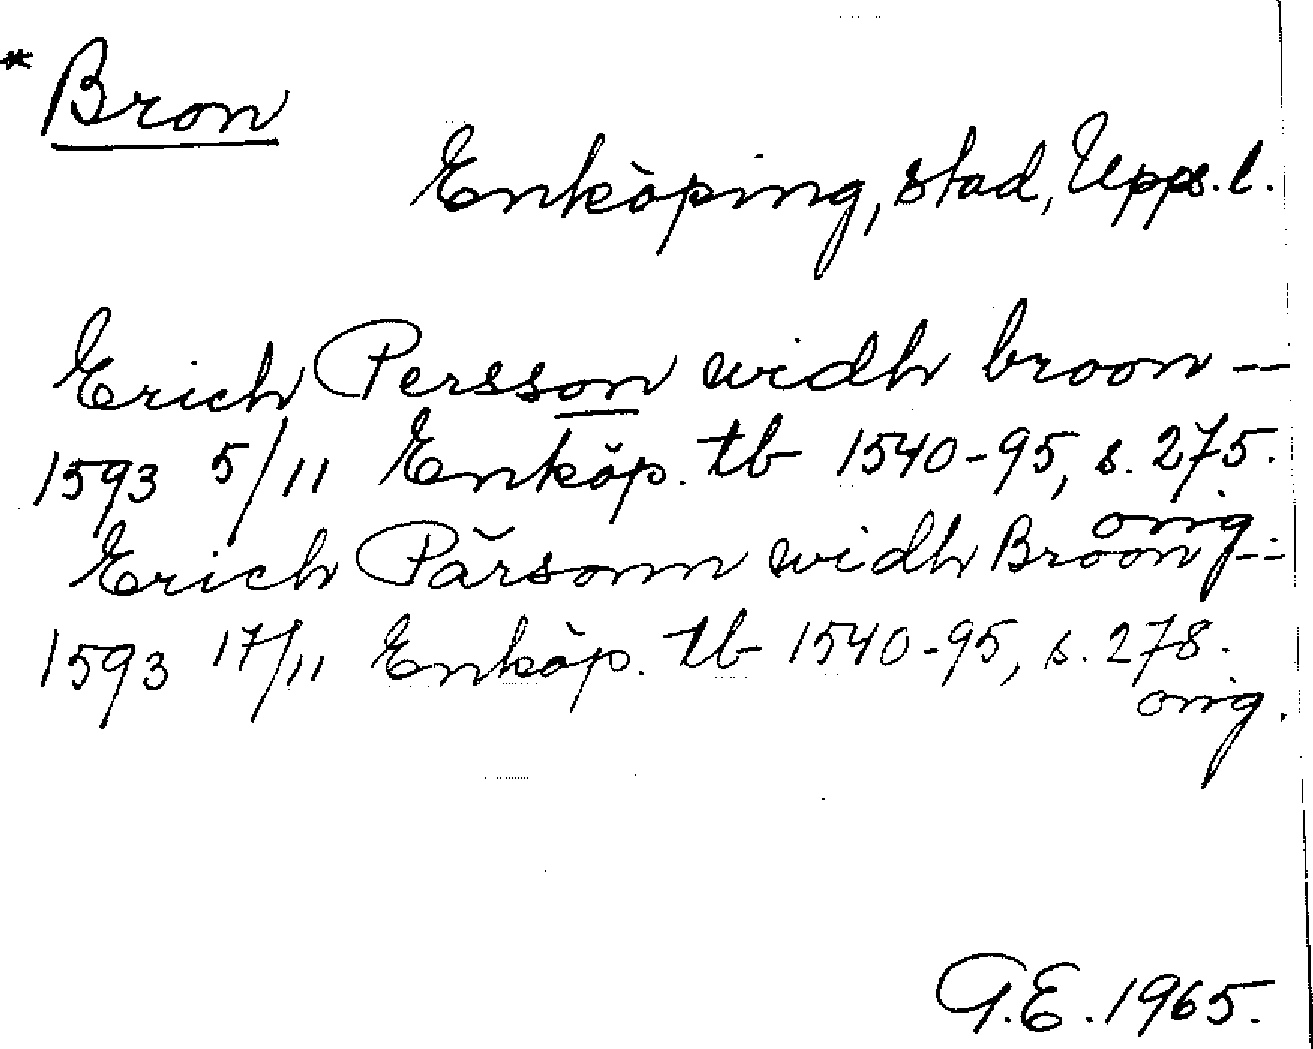 * Bron
Enköping, stad, Upps. l.
Erich Persson widh broon --
1593 5/11 Enköp. tb 1540-95, s. 275.
orig.
Erich Pärsonn widh Broon --
1593 17/11 Enköp. tb 1540-95, s. 278.
orig.
G.E. 1965.